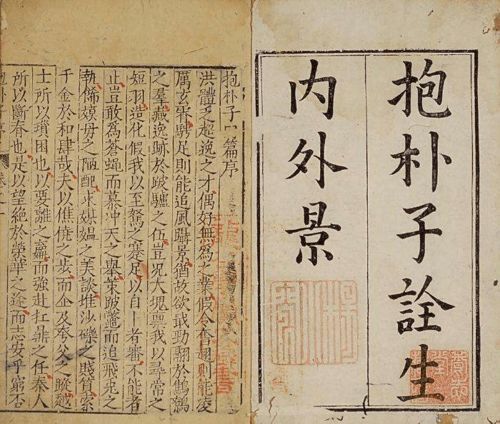 抱朴子詮生
内外景
抱朴子内篇序
洪體乏超逸之才偶好無為之業假令奮翅則能凌
厲玄霄騁足則能追風躡景猶故欲戢勁翮於鷦鷃
之羣藏逸跡於跛驢之伍豈况大塊稟我以尋常之
短羽造化假我以至駑之蹇足以自卜者審不能者
止豈敢為蒼蠅而慕冲天之舉策跛鼈而追飛兔之
軌飾嫫母之陋求媒媼之美談堆沙礫之賤質索
千金於和肆哉夫以僬僥之步而企及夸父之蹤越
士所以困也以要離之羸而強赴扛鼎之任秦人
所以斷筋也是以望絕於榮華之途而志安乎窮否